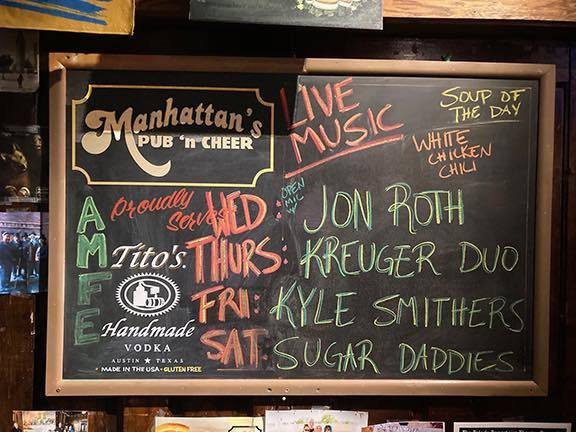 Manhattan's
PUB 'n CHEER
LIVE
MUSIC
SOUP OF
THE DAY
WHITE
CHICKEN
CHILI
AMFE
Proudly
Serves
Tito's
Handmade
VODKA
AUSTIN ★ TEXAS
• MADE IN THE USA • GLUTEN FREE
OPEN
MIC
W
WED: JON ROTH
THURS: KREUGER DUO
FRI: KYLE SMITHERS
SAT: SUGAR DADDIES